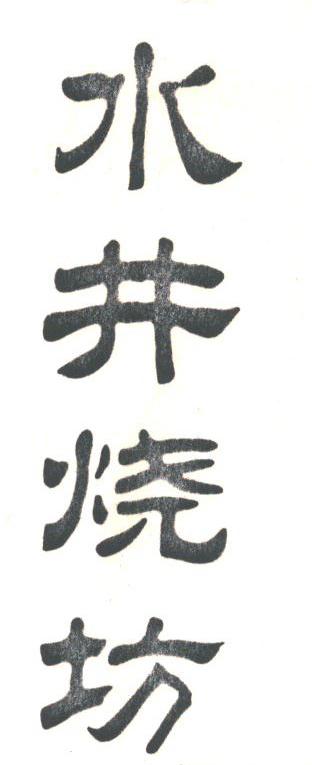 水井烧坊